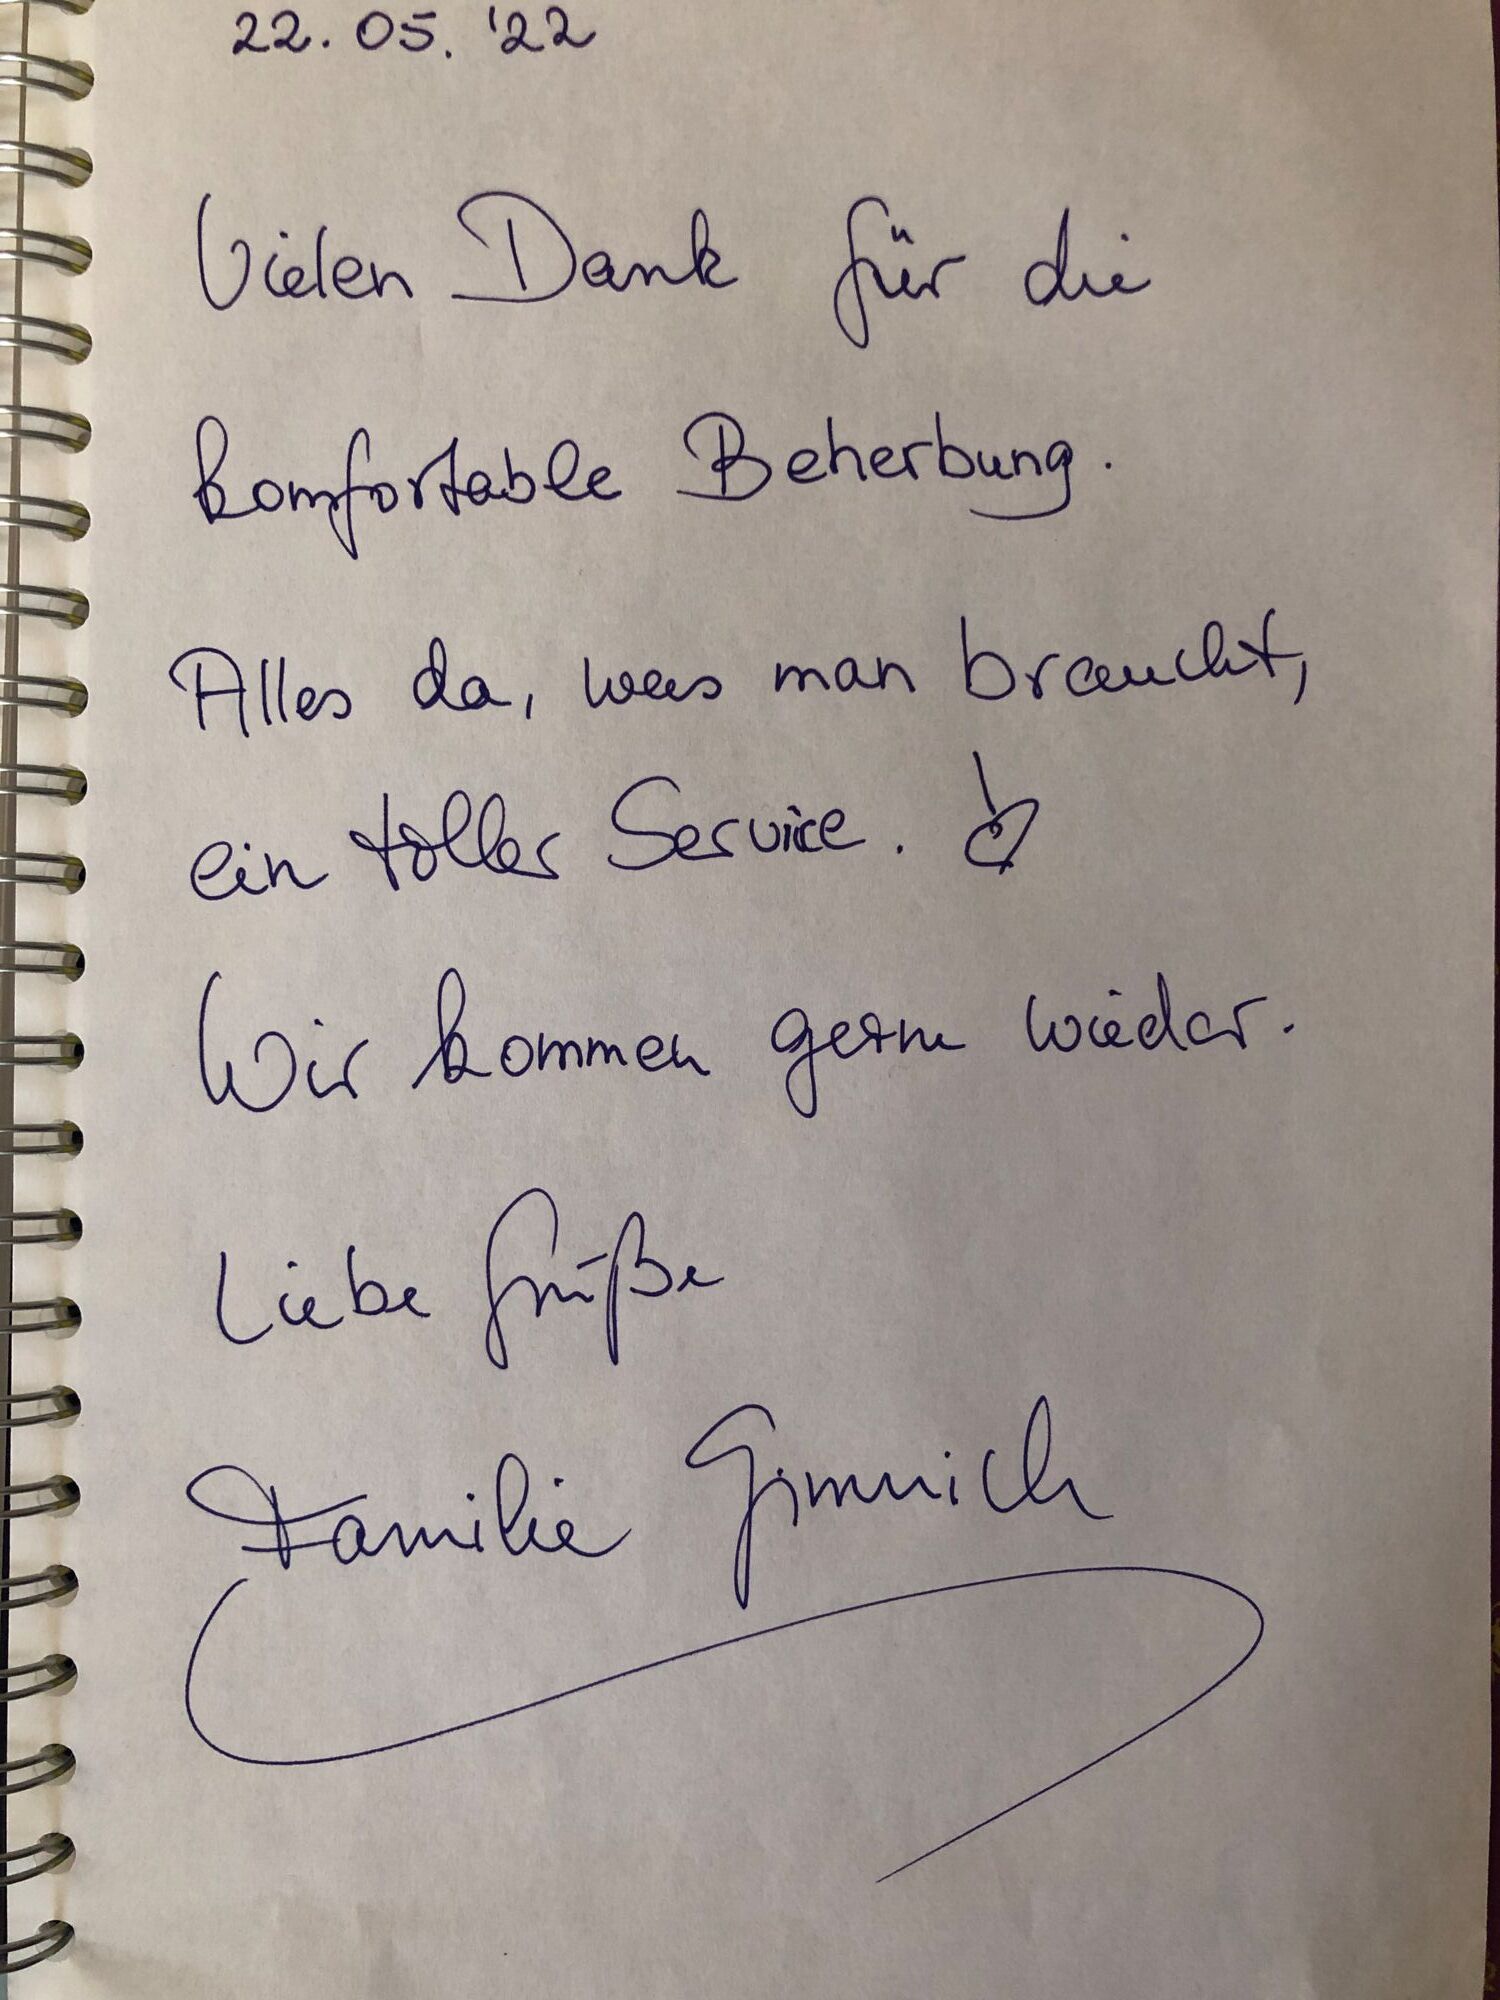 22. 05. '22
Vielen Dank für die
komfortable Beherbung.
Alles da, was man braucht,
ein toller Service.
Wir kommen gerne wieder.
Liebe Grüße
Familie Gimnich